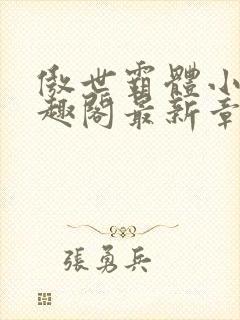 傲世霸體小
趣閣最新章
張勇兵